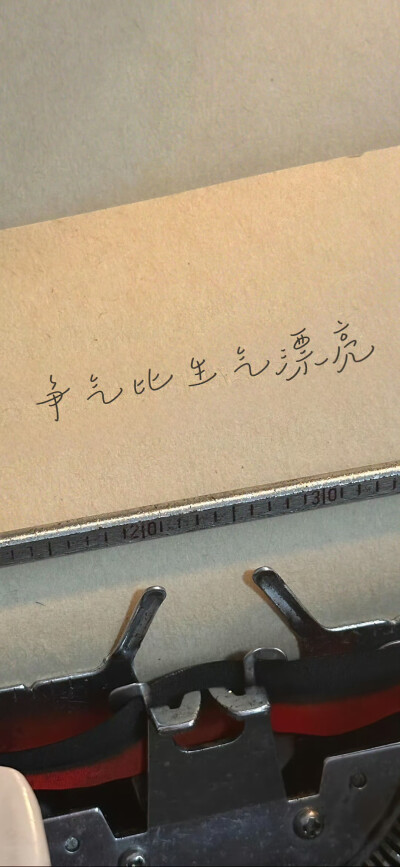 争气比生气漂亮
20 30